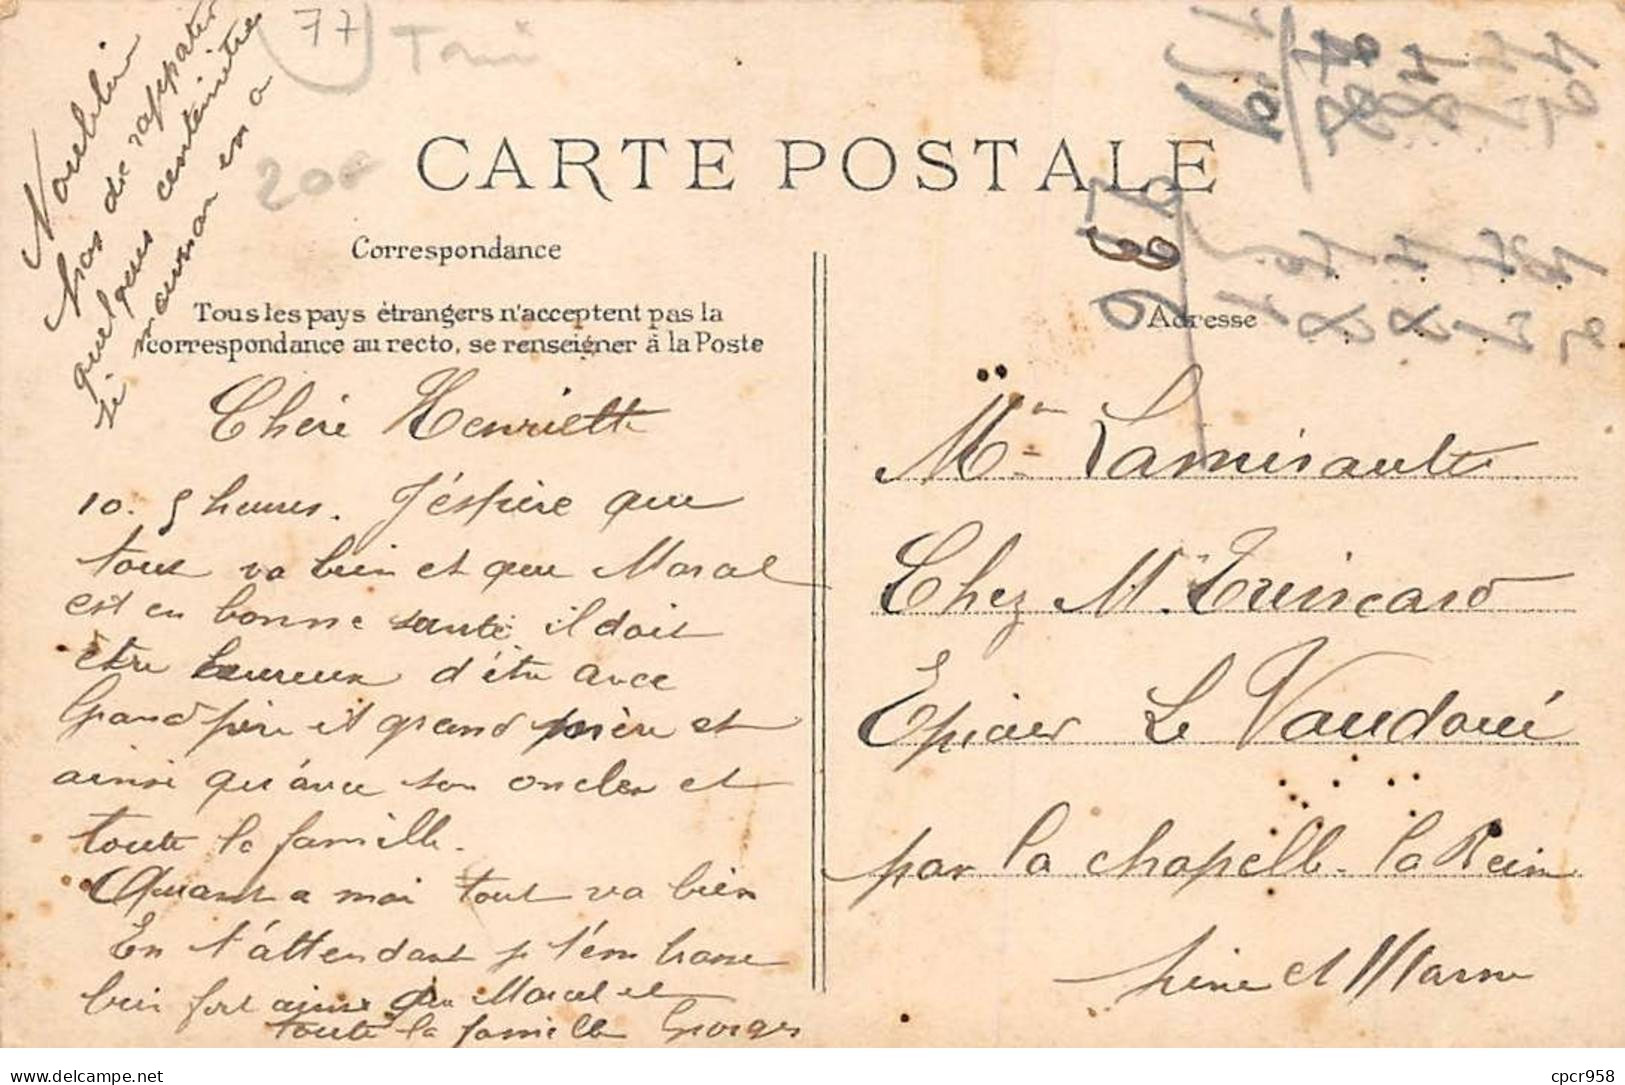 77
200
N'oublie
pas de rapporter
quelques centimètres
si maman en a
CARTE POSTALE
Correspondance
Tous les pays étrangers n'acceptent pas la
correspondance au recto, se renseigner à la Poste
Adresse
Chère Henriette
10. 5 heures. J'éspère que
tout va bien et que Marcel
est en bonne santé il doit
etre heureux d'étre avec
Grand père et grand mère et
ainsi qu'avec son oncles et
toute la famille.
Quant a moi tout va bien
En t'attendant je t'embrasse
bien fort ainsi que Marcel et
toute la famille Georges
Mme Lamirault
Chez Mr Trincard
Epicier Le Vaudoué
par la chapelle la Reine
Seine et Marne
delcampe.net
cpcr958